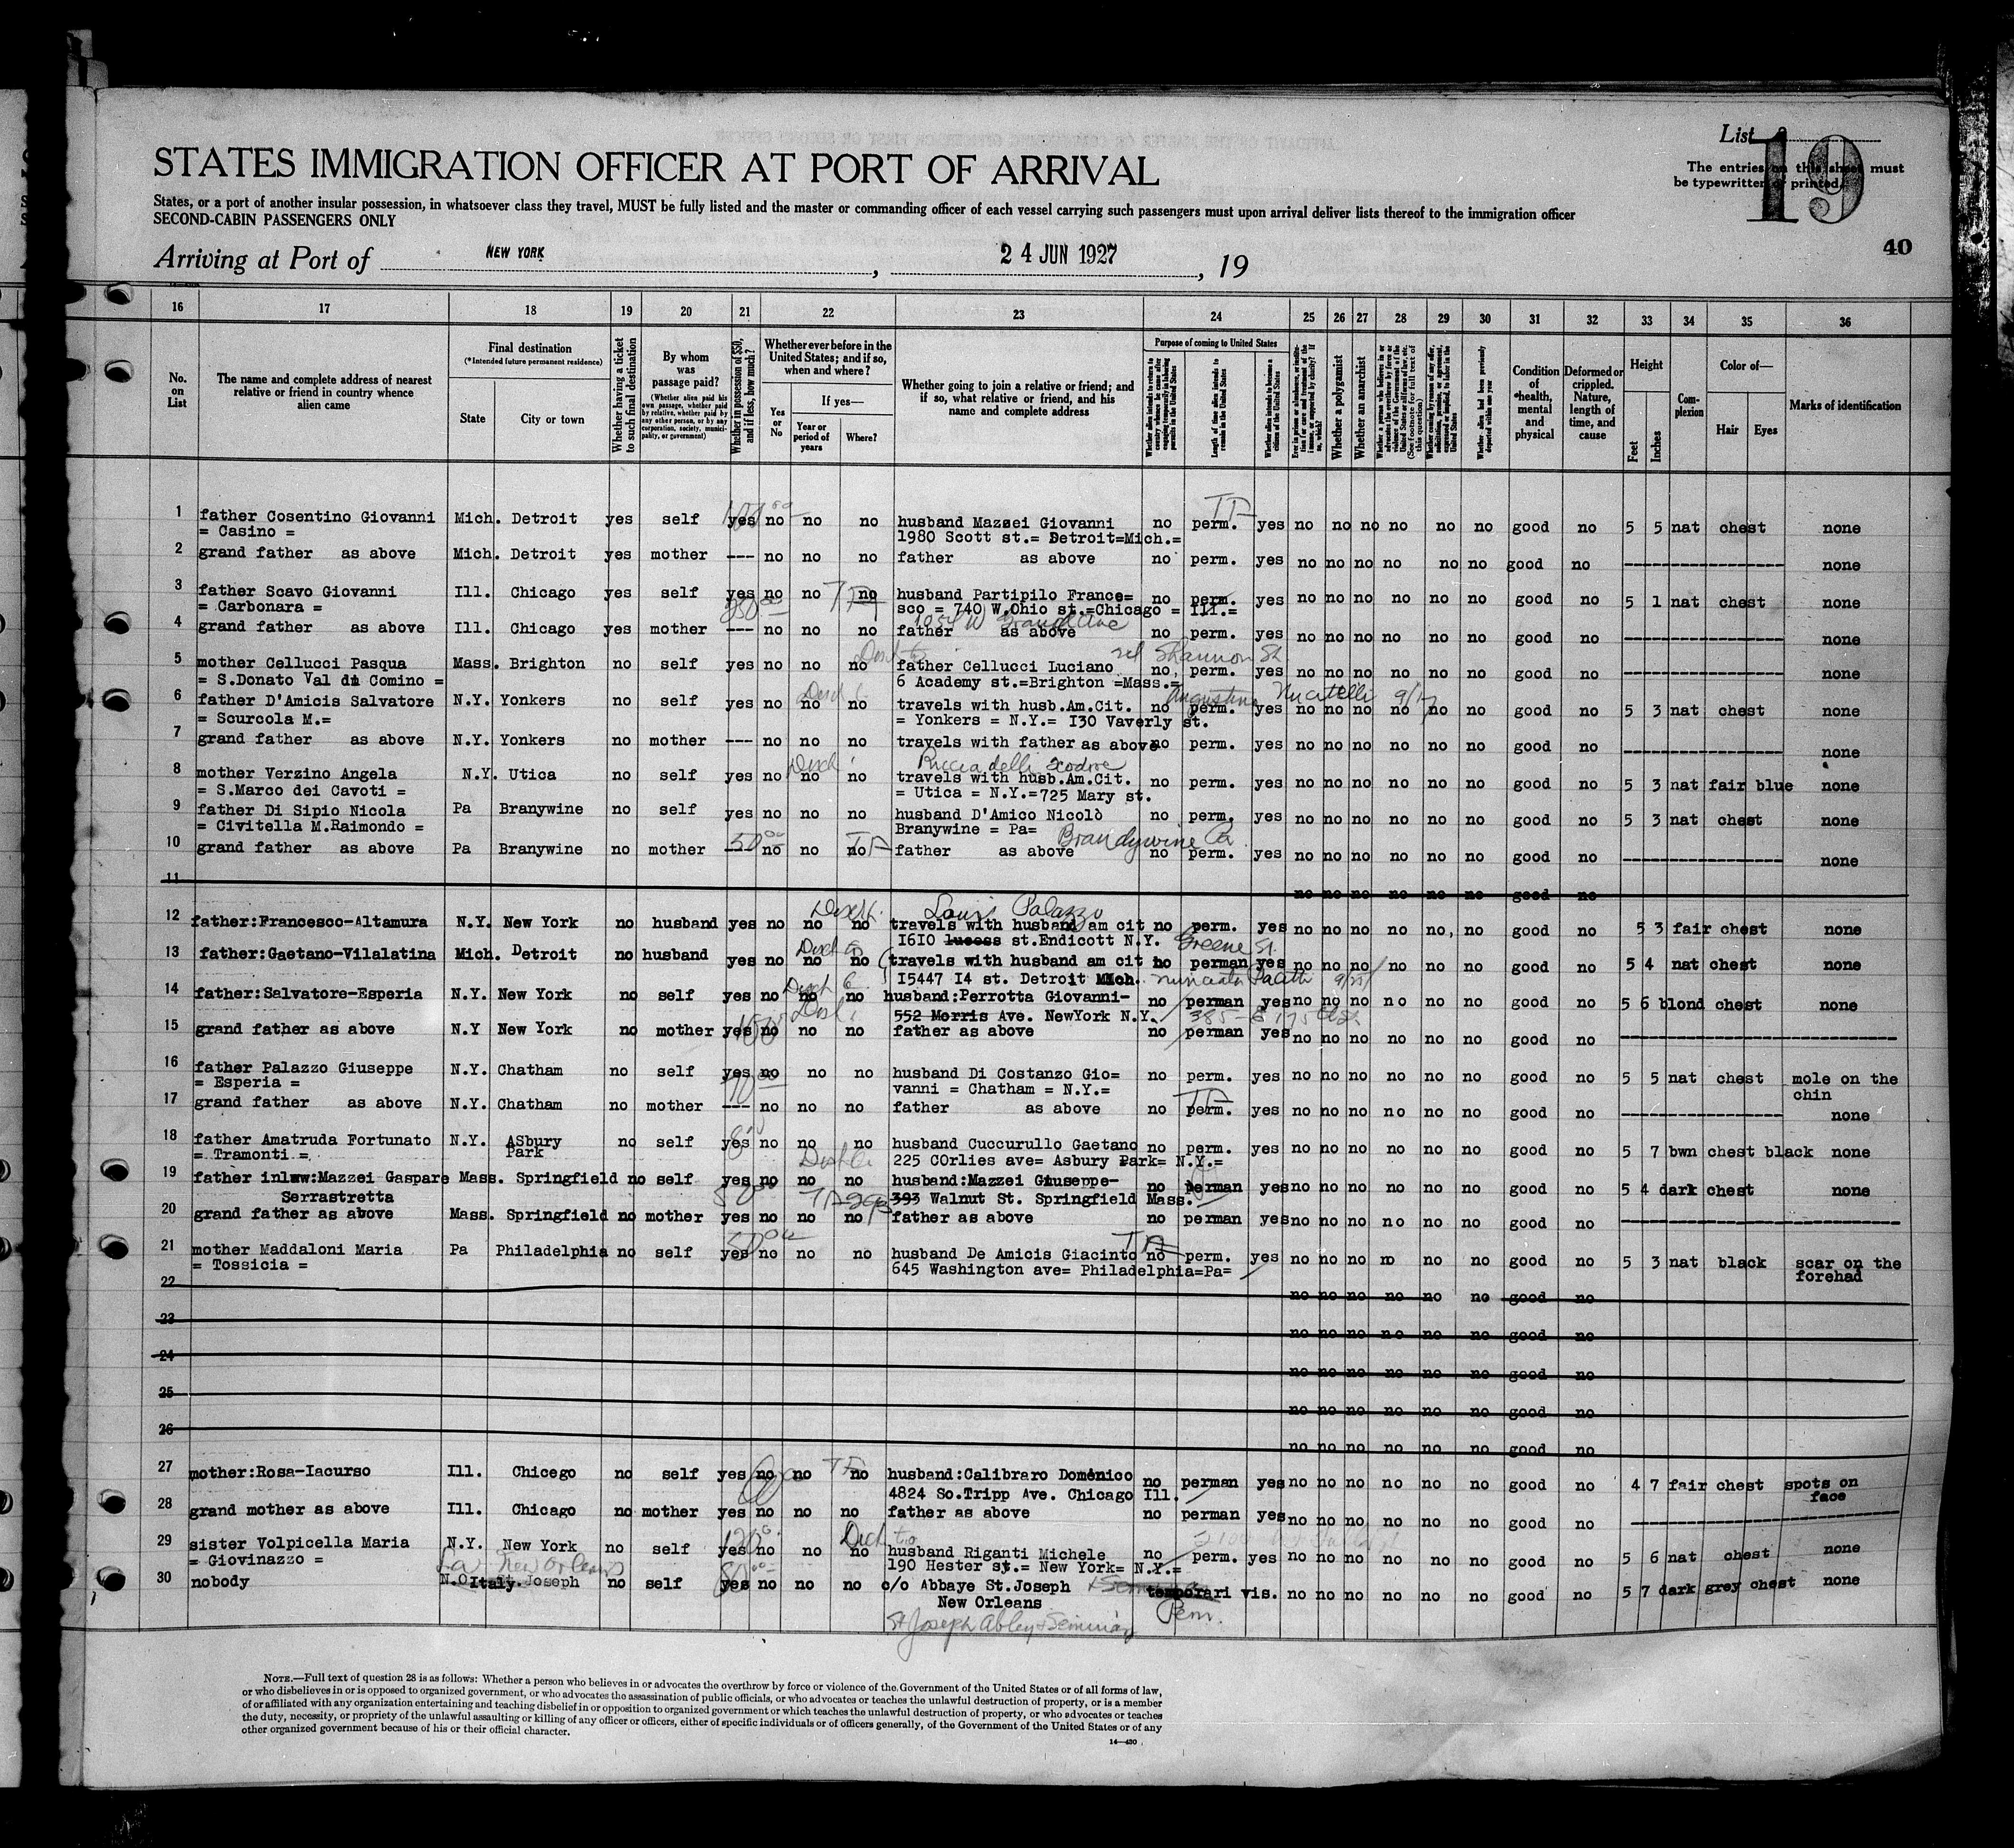 List
19
The entries on this sheet must
be typewritten or printed.
STATES IMMIGRATION OFFICER AT PORT OF ARRIVAL
States, or a port of another insular possession, in whatsoever class they travel, MUST be fully listed and the master or commanding officer of each vessel carrying such passengers must upon arrival deliver lists thereof to the immigration officer
SECOND-CABIN PASSENGERS ONLY
40
Arriving at Port of NEW YORK, 24 JUN 1927, 19
16 17 18 19 20 21 22 23 24 25 26 27 28 29 30 31 32 33 34 35 36
No. on List
The name and complete address of nearest relative or friend in country whence alien came
Final destination
(*Intended future permanent residence)
State
City or town
Whether having a ticket to such final destination
By whom was passage paid?
(Whether alien paid his own passage, whether paid by relative, whether paid by any other person, or by any corporation, society, municipality, or government)
Whether in possession of $50, and if less, how much?
Whether ever before in the United States; and if so, when and where?
Yes or No
If yes—
Year or period of years
Where?
Whether going to join a relative or friend; and if so, what relative or friend, and his name and complete address
Purpose of coming to United States
Whether alien intends to return to country whence he came after engaging temporarily in laboring pursuits in the United States
Length of time alien intends to remain in the United States
Whether alien intends to become a citizen of the United States
Ever in prison or almshouse, or institution for care and treatment of the insane, or supported by charity? If so, which?
Whether a polygamist
Whether an anarchist
Whether a person who believes in or advocates the overthrow by force or violence of the Government of the United States or all forms of law, etc. (See footnote for full text of this question)
Whether coming by reason of any offer, solicitation, promise, or agreement, expressed or implied, to labor in the United States
Whether alien had been previously deported within one year
Condition of health, mental and physical
Deformed or crippled. Nature, length of time, and cause
Height
Feet
Inches
Complexion
Color of—
Hair
Eyes
Marks of identification
1 father Cosentino Giovanni Mich. Detroit yes self yes no no no husband Mazzei Giovanni no perm. yes no no no no no no good no 5 5 nat chest none
= Casino = 1980 Scott st.= Detroit=Mich.=
TA
2 grand father as above Mich. Detroit yes mother --- no no no father as above no perm. yes no no no no no no good no ------------------ none
3 father Scavo Giovanni Ill. Chicago yes self yes no no no husband Partipilo France= no perm. yes no no no no no no good no 5 1 nat chest none
= Carbonara = sco = 740 W.Ohio st.=Chicago = Ill.=
4 grand father as above Ill. Chicago yes mother --- no no no father as above no perm. yes no no no no no no good no ------------------ none
5 mother Cellucci Pasqua Mass. Brighton no self yes no no no father Cellucci Luciano no perm. yes no no no no no no good no ------------------ none
= S.Donato Val di Comino = 6 Academy st.=Brighton =Mass.=
Shannon St.
6 father D'Amicis Salvatore N.Y. Yonkers no self yes no no no travels with husb.Am.Cit. no perm. yes no no no no no no good no 5 3 nat chest none
= Scurcola M.= = Yonkers = N.Y.= I30 Vaverly st.
7 grand father as above N.Y. Yonkers no mother --- no no no travels with father as above no perm. yes no no no no no no good no ------------------ none
8 mother Verzino Angela N.Y. Utica no self yes no no no travels with husb.Am.Cit. no perm. yes no no no no no no good no 5 3 nat fair blue none
= S.Marco dei Cavoti = = Utica = N.Y.=725 Mary st.
9 father Di Sipio Nicola Pa Branywine no self yes no no no husband D'Amico Nicolò no perm. yes no no no no no no good no 5 3 nat chest none
= Civitella M.Raimondo = Branywine = Pa= Brandywine Pa
10 grand father as above Pa Branywine no mother --- no no no father as above no perm. yes no no no no no no good no ------------------ none
11 no no no no no no good no
Louis Palazzo
12 father:Francesco-Altamura N.Y. New York no husband yes no no no travels with husband am cit no perm. yes no no no no no no good no 5 3 fair chest none
I6I0 st.Endicott N.Y. Greene St.
13 father:Gaetano-Vilalatina Mich. Detroit no husband yes no no no travels with husband am cit no perman yes no no no no no no good no 5 4 nat chest none
I5447 I4 st. Detroit Mich.
14 father:Salvatore-Esperia N.Y. New York no self yes no no no husband:Perrotta Giovanni- no perman yes no no no no no no good no 5 6 blond chest none
552 Morris Ave. NewYork N.Y.
15 grand father as above N.Y New York no mother yes no no no father as above no perman yes no no no no no no good no ------------------
16 father Palazzo Giuseppe N.Y. Chatham no self yes no no no husband Di Costanzo Gio= no perm. yes no no no no no no good no 5 5 nat chest mole on the
= Esperia = vanni = Chatham = N.Y.= chin
17 grand father as above N.Y. Chatham no mother --- no no no father as above no perm. yes no no no no no no good no ------------------ none
18 father Amatruda Fortunato N.Y. ASbury Park no self yes no no no husband Cuccurullo Gaetano no perm. yes no no no no no no good no 5 7 bwn chest black none
= Tramonti = 225 COrlies ave= Asbury Park= N.Y.=
19 father inlaw:Mazzei Gaspare Mass. Springfield no self yes no no no husband:Mazzei Giuseppe- no perman yes no no no no no no good no 5 4 dark chest none
Serrastretta 393 Walnut St. Springfield Mass.
20 grand father as above Mass. Springfield no mother yes no no no father as above no perman yes no no no no no no good no ------------------
21 mother Maddaloni Maria Pa Philadelphia no self yes no no no husband De Amicis Giacinto no perm. yes no no no no no no good no 5 3 nat black scar on the
= Tossicia = 645 Washington ave= Philadelphia=Pa= forehad
22 no no no no no no good no
23 no no no no no no good no
24 no no no no no no good no
25 no no no no no no good no
26 no no no no no no good no
27 mother:Rosa-Iacurso Ill. Chicego no self yes no no no husband:Calibraro Domenico no perman yes no no no no no no good no 4 7 fair chest spots on
4824 So.Tripp Ave. Chicago Ill. face
28 grand mother as above Ill. Chicago no mother yes no no no father as above no perman yes no no no no no no good no ------------------
29 sister Volpicella Maria N.Y. New York no self yes no no no husband Riganti Michele no perm. yes no no no no no no good no 5 6 nat chest none
= Giovinazzo = 190 Hester st.= New York= N.Y.=
La New Orleans
30 nobody N.O. Italy. St. Joseph no self yes no no no c/o Abbaye St.Joseph temporari vis. no no no no no no good no 5 7 dark grey chest none
New Orleans Perm.
St Joseph Abbey + Seminary
NOTE.—Full text of question 28 is as follows: Whether a person who believes in or advocates the overthrow by force or violence of the Government of the United States or of all forms of law,
or who disbelieves in or is opposed to organized government, or who advocates the assassination of public officials, or who advocates or teaches the unlawful destruction of property, or is a member
of or affiliated with any organization entertaining and teaching disbelief in or opposition to organized government or which teaches the unlawful destruction of property, or who advocates or teaches
the duty, necessity, or propriety of the unlawful assaulting or killing of any officer or officers, either of specific individuals or of officers generally, of the Government of the United States or of any
other organized government because of his or their official character.
14—430